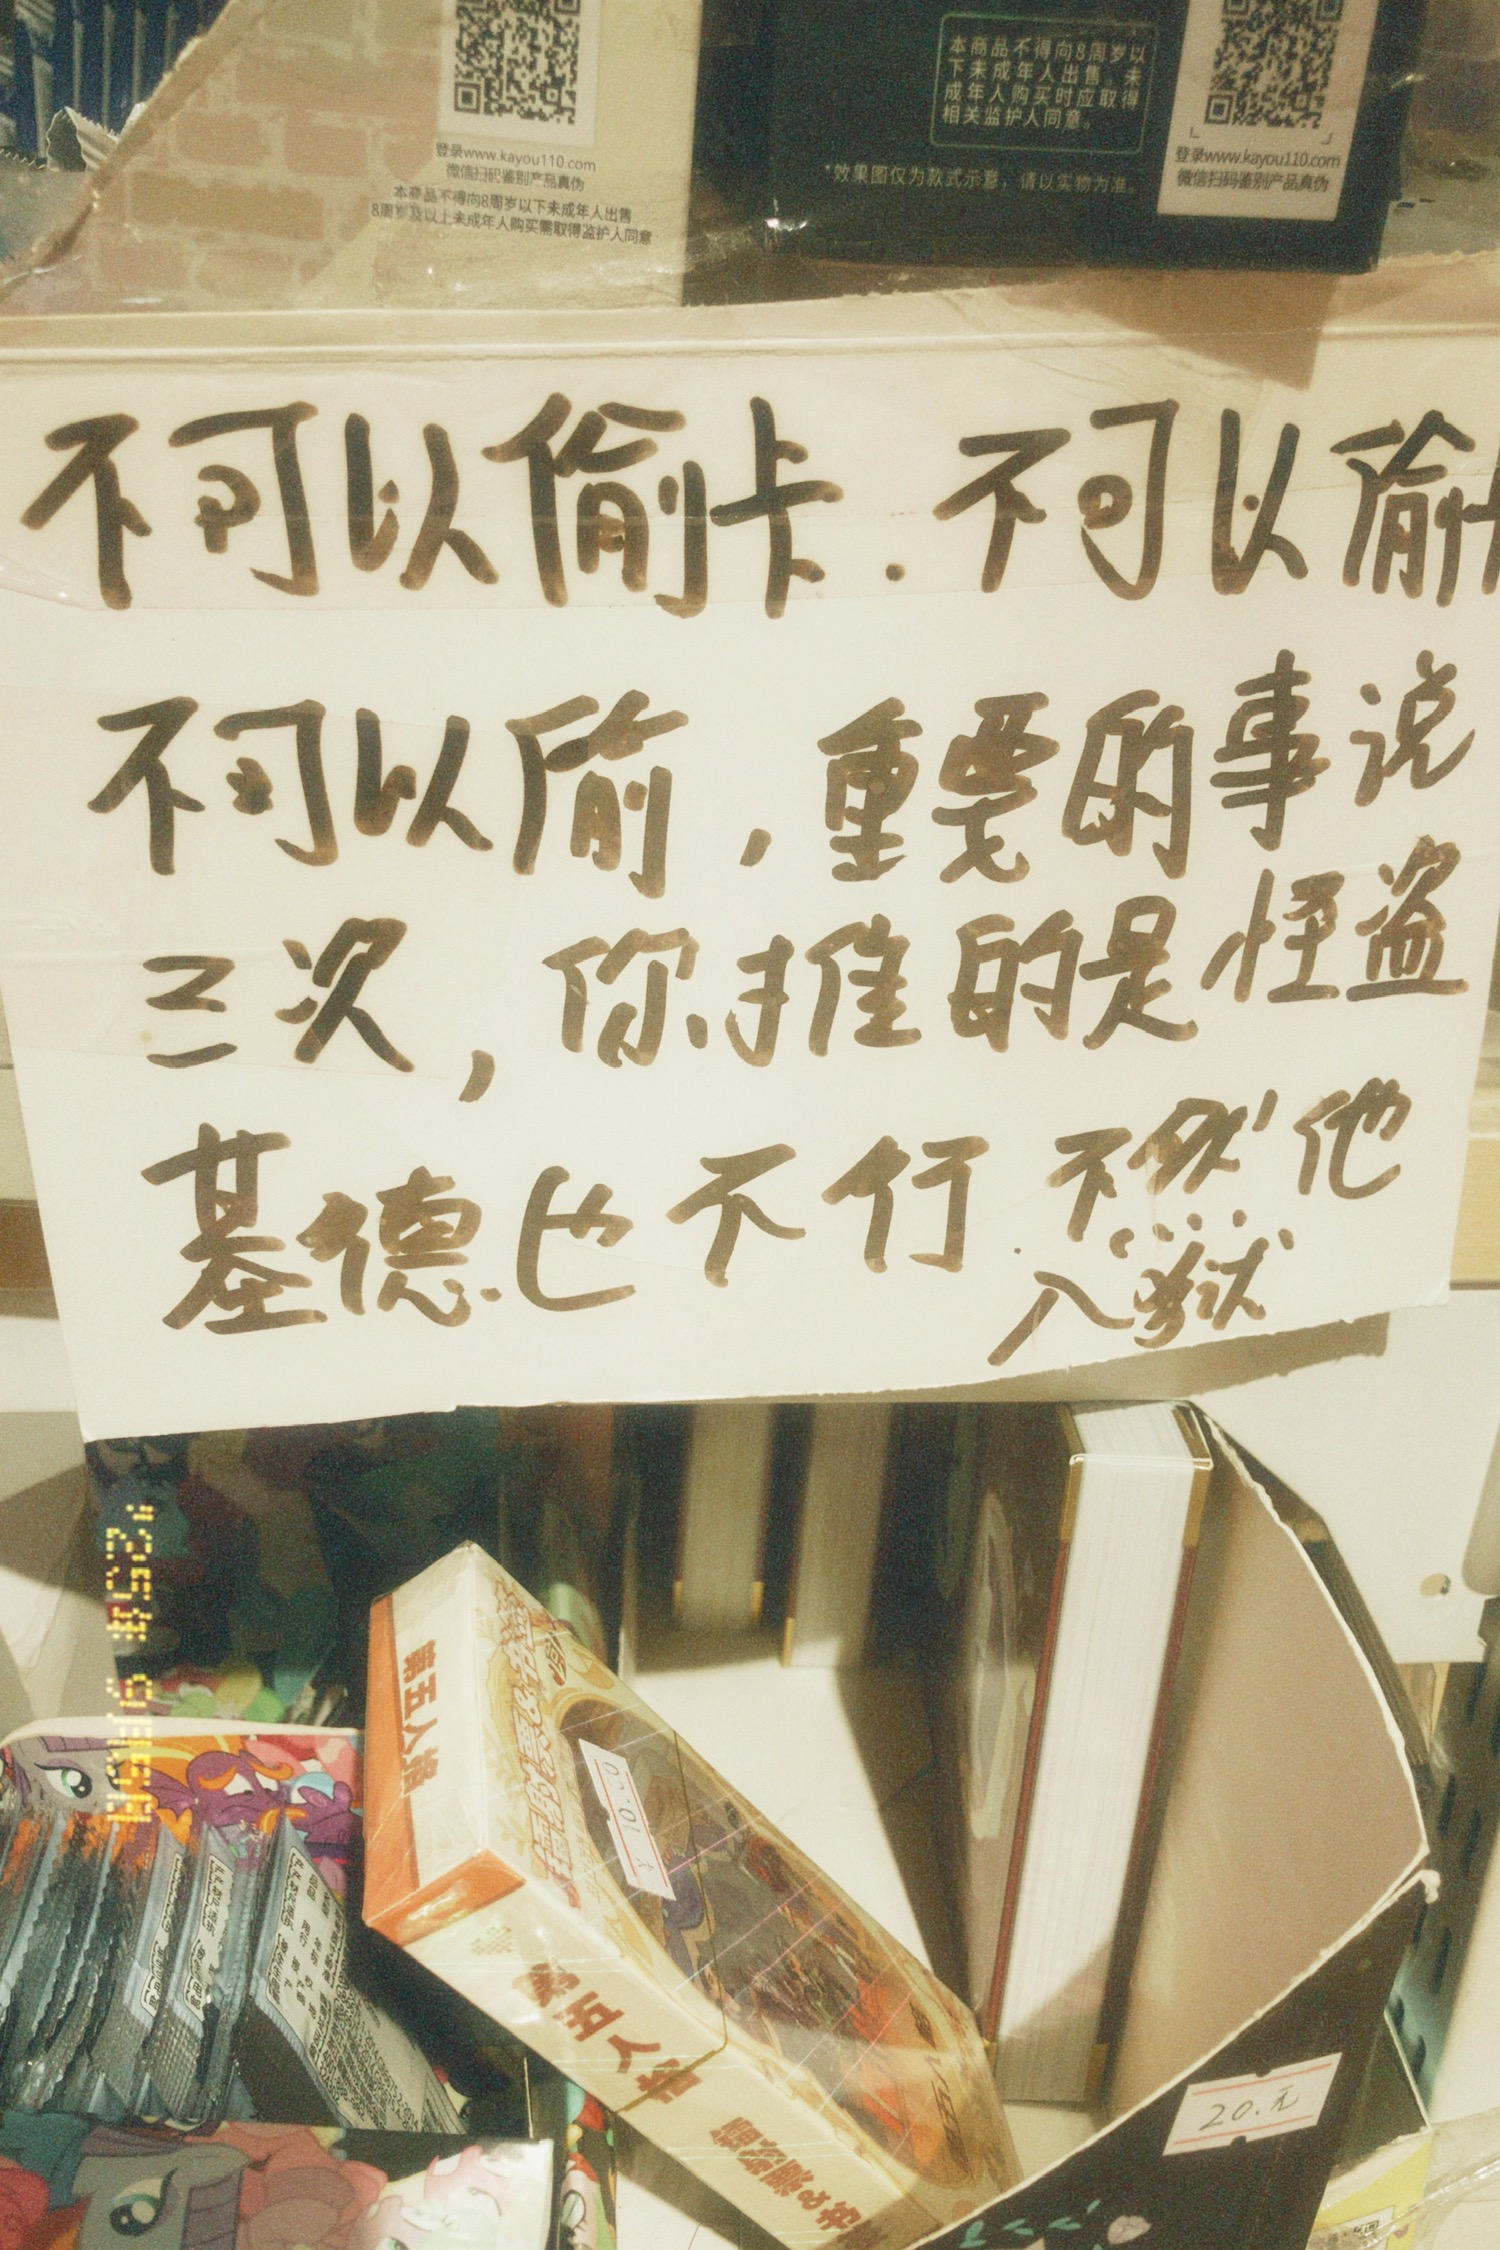 本商品不得向8周岁以
下未成年人出售。未
成年人购买时应取得
相关监护人同意。
*效果图仅为款式示意，请以实物为准。
登录www.kayou110.com
微信扫码鉴别产品真伪
本商品不得向8周岁以下未成年人出售
8周岁及以上未成年人购买需取得监护人同意
登录www.kayou110.com
微信扫码鉴别产品真伪
不可以偷卡.不可以偷卡
不可以偷,重要的事说
三次,你推的是怪盗
基德也不行.不然他
入狱
第五人格
10.00
元
第五人格
20.元